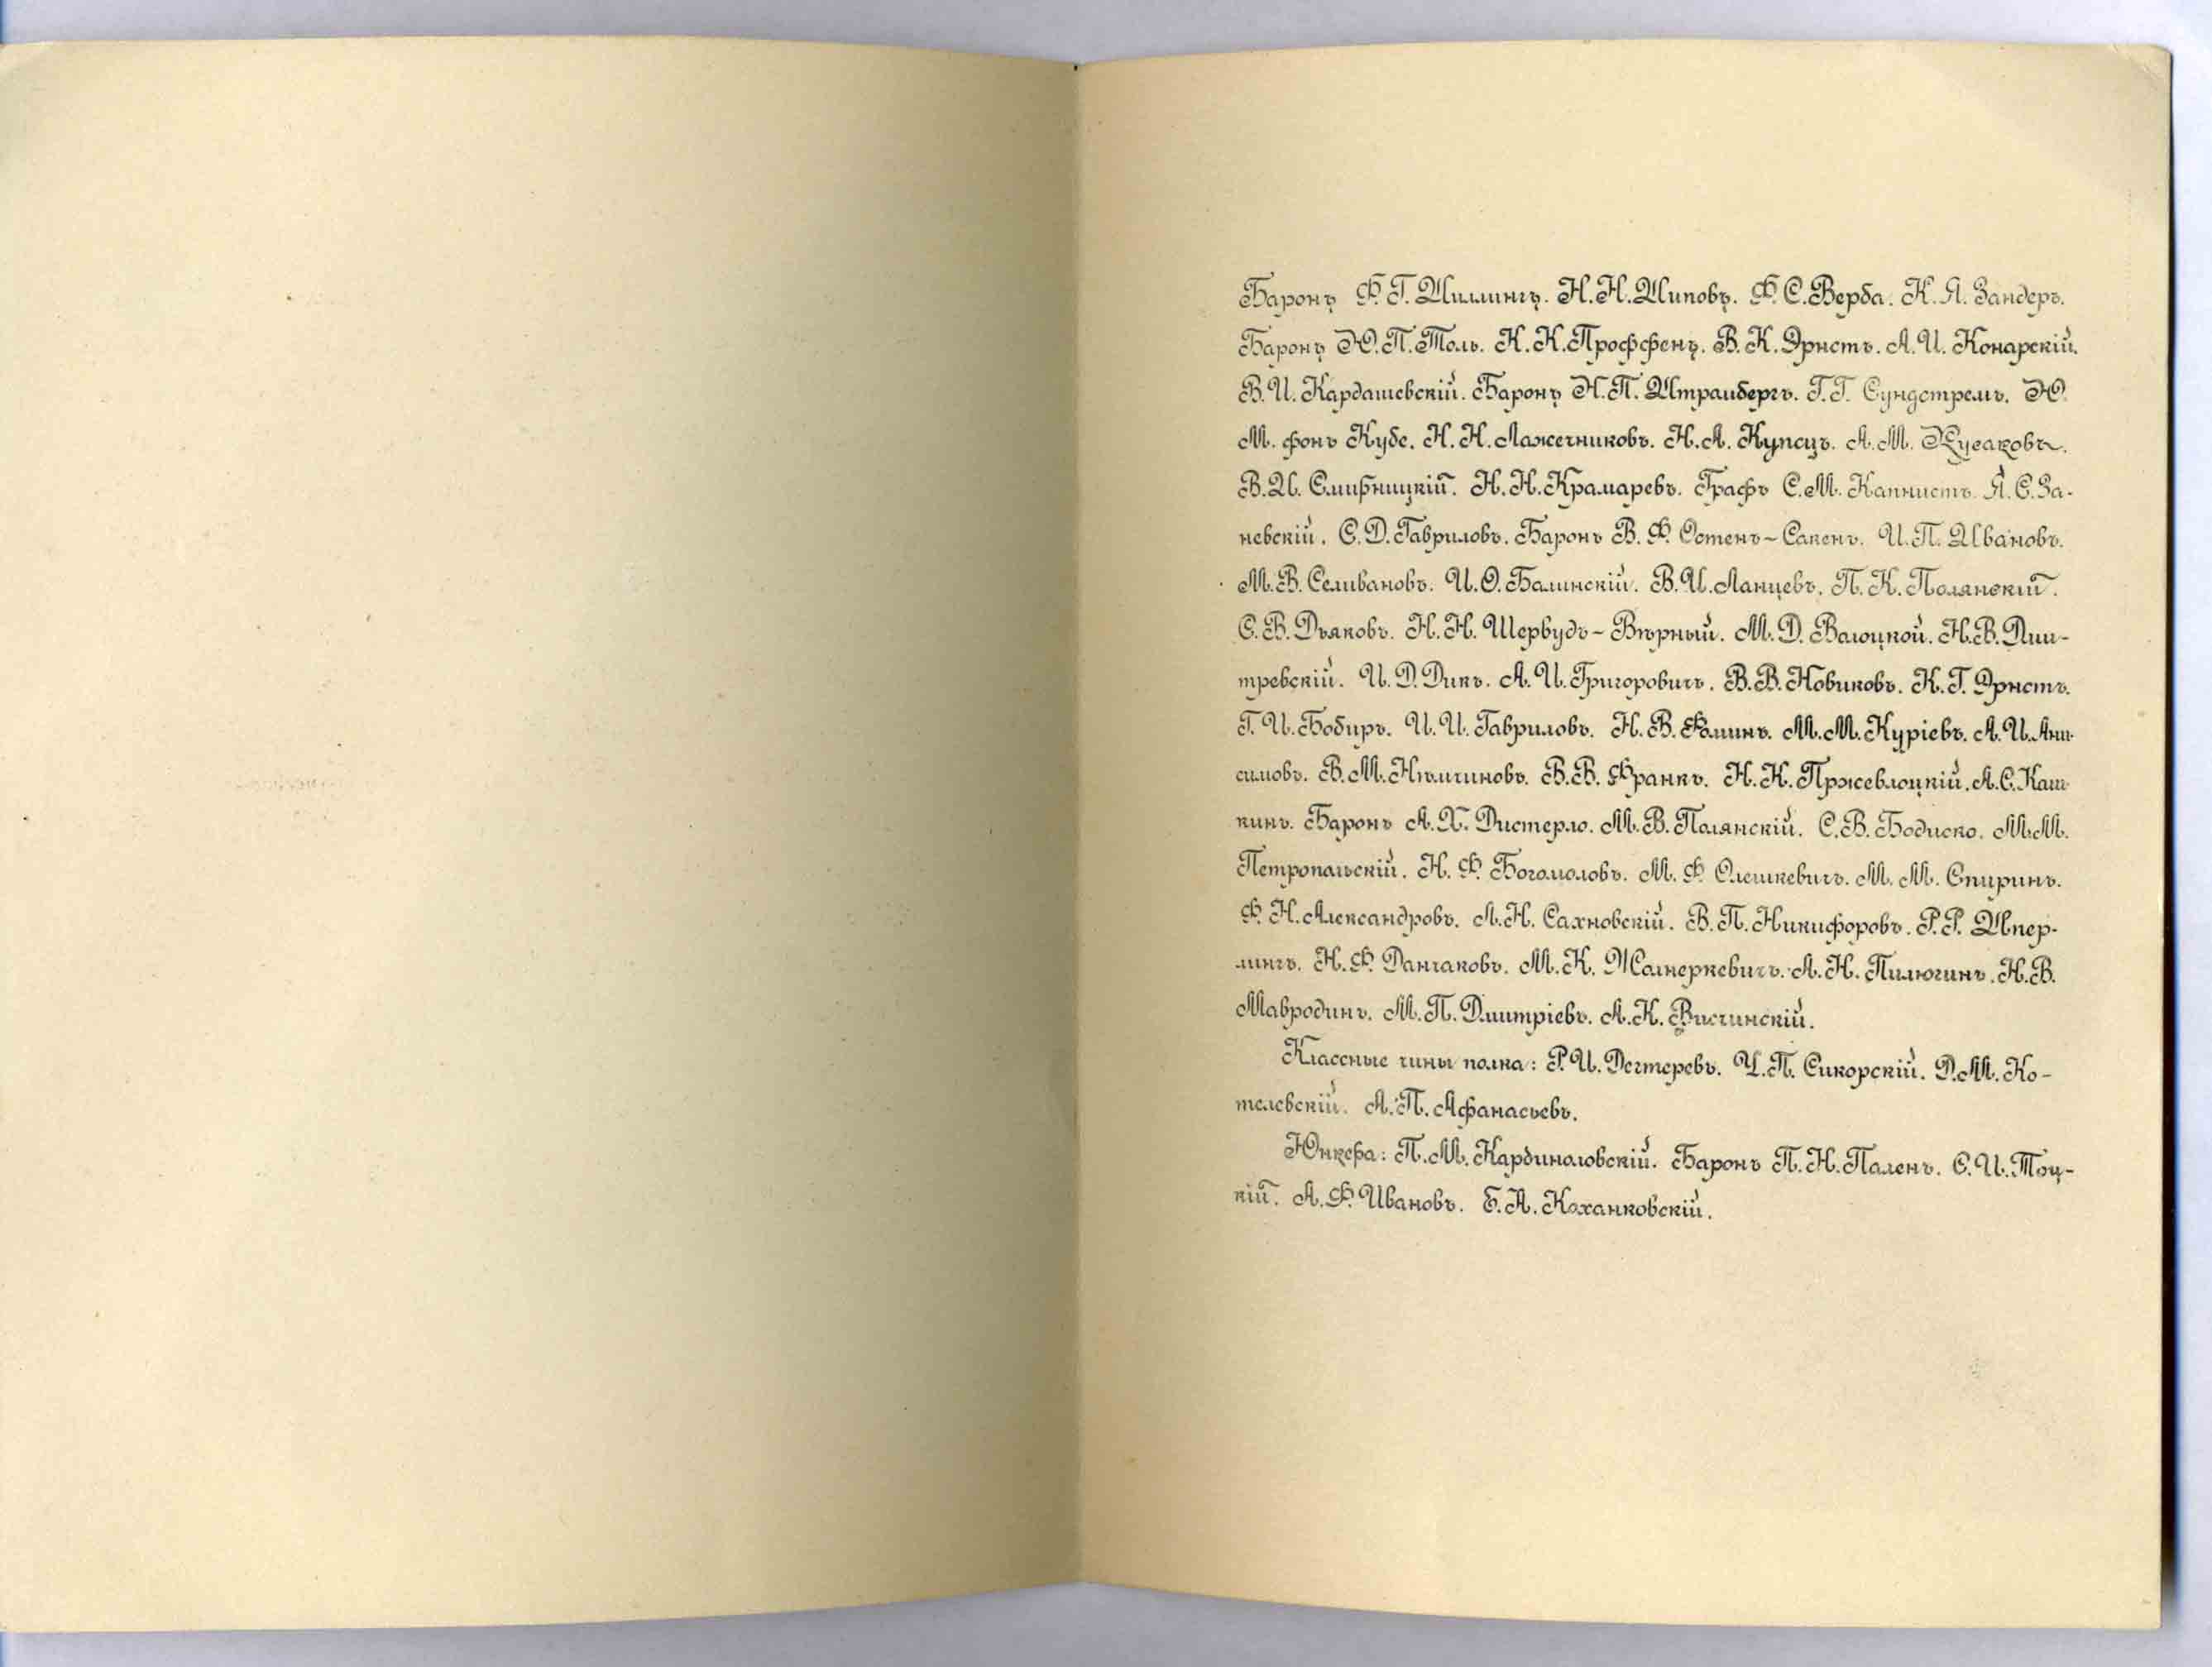 Баронъ Ф. Г. Шиллингъ. Н. Н. Шиповъ. Ф. С. Верба. К. Я. Зандеръ.
Баронъ Ю. П. Толь. К. К. Проффенъ. В. К. Эрнстъ. А. И. Конарскій.
В. И. Кардашевскій. Баронъ Н. П. Штральбергъ. Г. Г. Сундстремъ. Ю.
М. фонъ Кубе. Н. Н. Лажечниковъ. Н. А. Купецъ. А. М.
В. И. Смирницкій. Н. Н. Крамаревъ. Графъ С. М. Капнистъ. Я. С. За-
невскій. С. Д. Гавриловъ. Баронъ В. Ф. Остенъ-Сакенъ. И. П. Ивановъ.
М. В. Селивановъ. И. О. Балинскій. В. И. Ланцевъ. П. К. Полянскій.
С. В. Дьяковъ. Н. Н. Шервудъ-Вѣрный. М. Д. Валюцкой. Н. В. Дми-
тревскій. И. Д. Дикъ. А. И. Григоровичъ. В. В. Новиковъ. К. Г. Эрнстъ.
Г. И. Бобиръ. И. И. Гавриловъ. Н. В. Фалинъ. М. М. Куріевъ. А. И. Ани-
симовъ. В. М. Нѣмчиновъ. В. В. Франкъ. Н. К. Пржевлоцкій. А. С. Каш-
кинъ. Баронъ А. Х. Дистерло. М. В. Полянскій. С. В. Бодиско. М. М.
Петропольскій. Н. Ф. Богомоловъ. М. Ф. Олешкевичъ. М. М. Спиринъ.
Ф. Н. Александровъ. Л. Н. Сахновскій. В. П. Никифоровъ. Р. Р. Шпер-
лингъ. Н. Ф. Данчаковъ. М. К. Жалнеркевичъ. А. Н. Пилюгинъ. Н. В.
Мавродинъ. М. П. Дмитріевъ. А. К. Висчинскій.
Классные чины полка: Р. И. Дегтеревъ. Ч. П. Сикорскій. Д. М. Ко-
телевскій. А. П. Афанасьевъ.
Юнкера: П. М. Кардиналовскій. Баронъ П. Н. Паленъ. С. И. Тоц-
кій. А. Ф. Ивановъ. Б. А. Коханковскій.